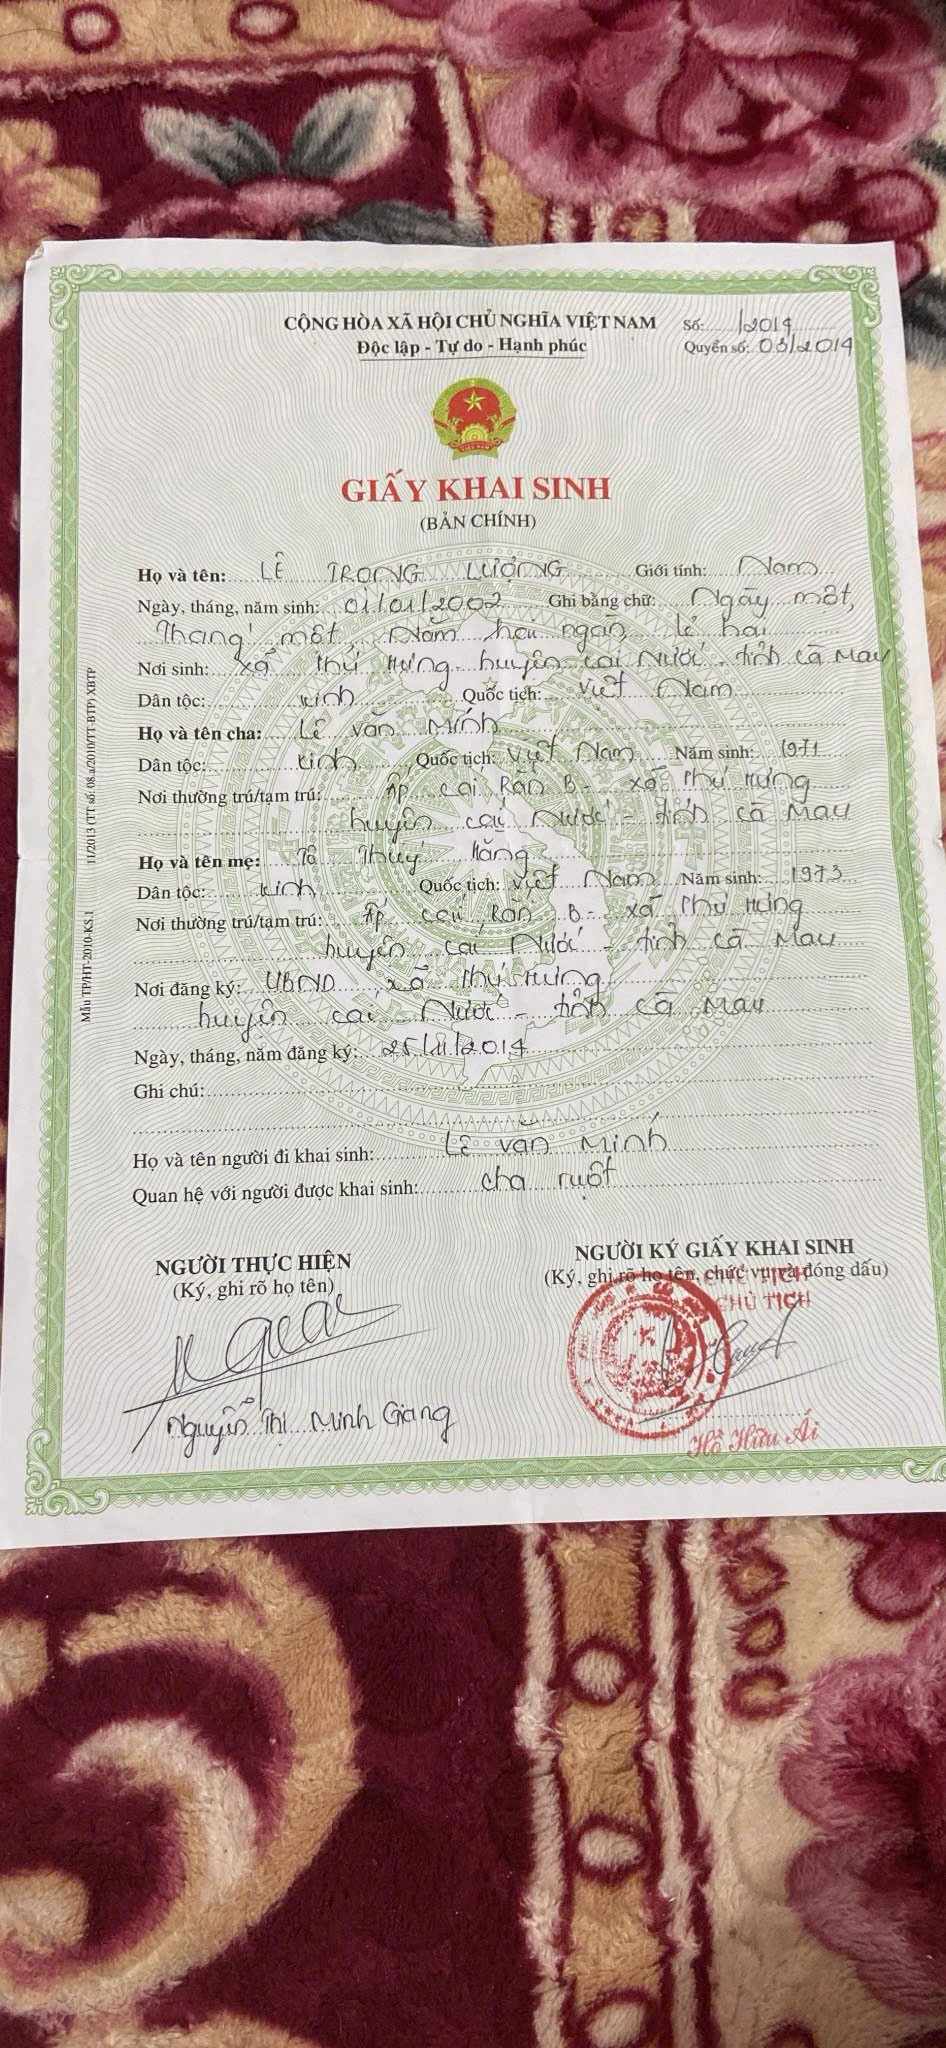 CỘNG HÒA XÃ HỘI CHỦ NGHĨA VIỆT NAM
Độc lập - Tự do - Hạnh phúc
Số: /2014
Quyển số: 03/2014
GIẤY KHAI SINH
(BẢN CHÍNH)
Họ và tên: LÊ TRỌNG LƯỢNG Giới tính: Nam
Ngày, tháng, năm sinh: 01/01/2002 Ghi bằng chữ: Ngày một,
Tháng một Năm hai ngàn lẻ hai
Nơi sinh: xã Phú Hưng - huyện Cái Nước - tỉnh Cà Mau
Dân tộc: Kinh Quốc tịch: Việt Nam
Họ và tên cha: Lê Văn Minh
Dân tộc: Kinh Quốc tịch: Việt Nam Năm sinh: 1971
Nơi thường trú/tạm trú: Ấp Cái Rắn B - xã Phú Hưng
huyện Cái Nước - tỉnh Cà Mau
Họ và tên mẹ: Tô Thúy Hằng
Dân tộc: Kinh Quốc tịch: Việt Nam Năm sinh: 1973
Nơi thường trú/tạm trú: Ấp Cái Rắn B - xã Phú Hưng
huyện Cái Nước - tỉnh Cà Mau
Nơi đăng ký: UBND xã Phú Hưng
huyện Cái Nước - tỉnh Cà Mau
Ngày, tháng, năm đăng ký: 25/11/2014
Ghi chú:
Họ và tên người đi khai sinh: Lê Văn Minh
Quan hệ với người được khai sinh: cha ruột
NGƯỜI THỰC HIỆN
(Ký, ghi rõ họ tên)
Nguyễn Thị Minh Giang
NGƯỜI KÝ GIẤY KHAI SINH
(Ký, ghi rõ họ tên, chức vụ và đóng dấu)
CHỦ TỊCH
Hồ Hữu Ái
Mẫu TP/HT-2010-KS.1 11/2013 (TT số: 08.a/2010/TT-BTP) XBTP